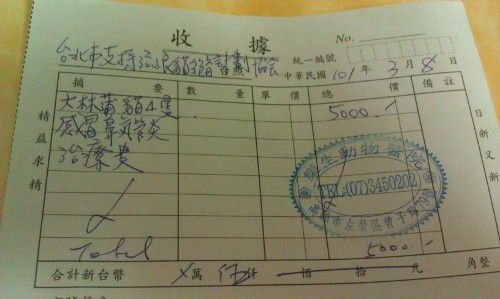 收據
No.
統一編號
台北市支持流浪貓絕育計劃協會
中華民國 101 年 3 月 8 日
摘要 數量 單價 總價 備註
大林蒲貓4隻 5000.-
感冒氣管炎
治療費
精益求精
日又新
動物醫院
TEL:(07)3450202
市左營區
Total 5000.-
合計新台幣 X萬 伍仟 佰 拾 元 角整